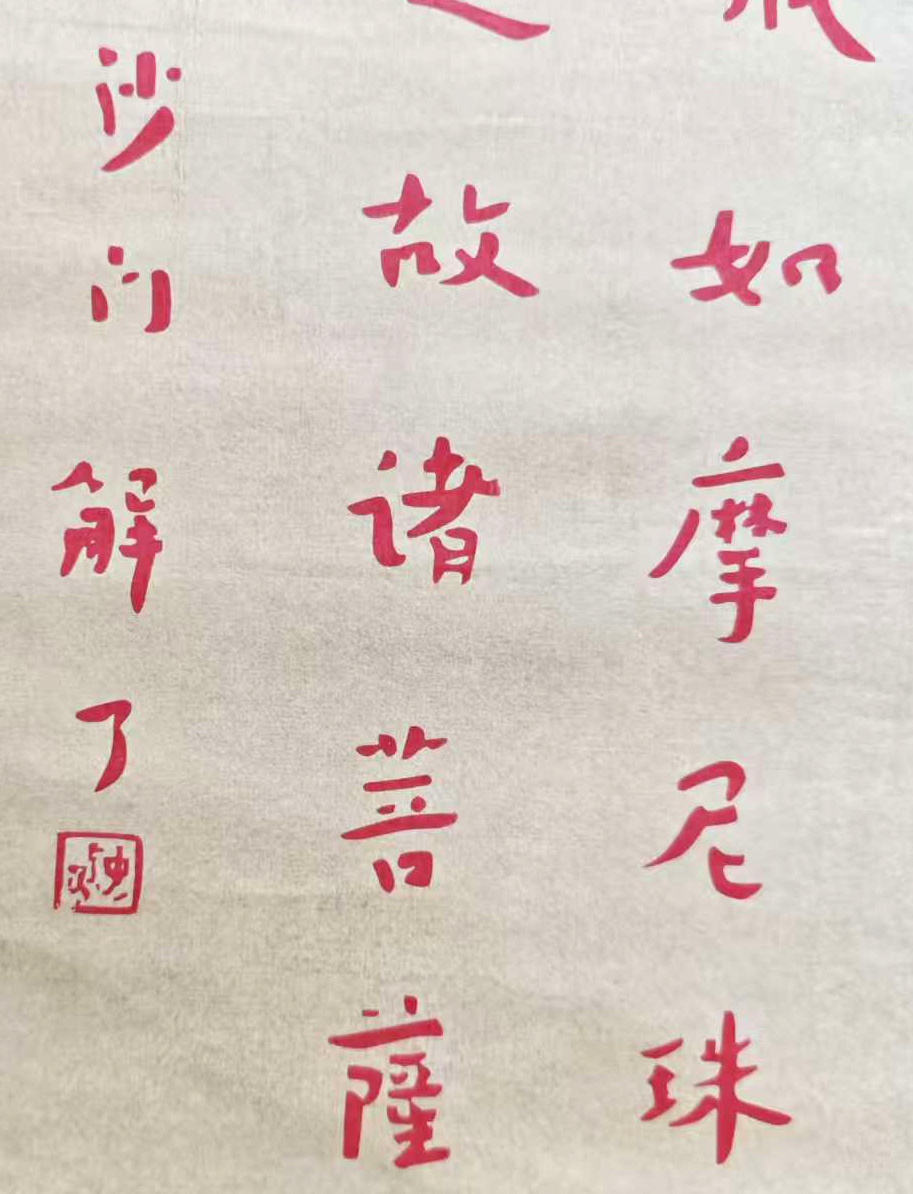 如摩尼珠
故诸菩薩
沙门解了